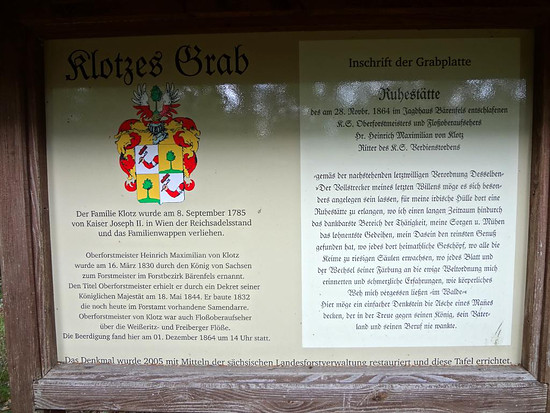 Klotzes Grab
Der Familie Klotz wurde am 8. September 1785
von Kaiser Joseph II. in Wien der Reichsadelsstand
und das Familienwappen verliehen.
Oberforstmeister Heinrich Maximilian von Klotz
wurde am 16. März 1830 durch den König von Sachsen
zum Forstmeister im Forstbezirk Bärenfels ernannt.
Den Titel Oberforstmeister erhielt er durch ein Dekret seiner
Königlichen Majestät am 18. Mai 1844. Er baute 1832
die noch heute im Forstamt vorhandene Samendarre.
Oberforstmeister von Klotz war auch Floßoberaufseher
über die Weißeritz- und Freiberger Flöße.
Die Beerdigung fand hier am 01. Dezember 1864 um 14 Uhr statt.
Inschrift der Grabplatte
Ruhestätte
des am 28. Novbr. 1864 im Jagdhaus Bärenfels entschlafenen
K.S. Oberforstmeisters und Floßoberaufsehers
Hr. Heinrich Maximilian von Klotz
Ritter des K.S. Verdienstordens
»gemäß der nachstehenden letztwilligen Verordnung Desselben«
»Der Vollstrecker meines letzten Willens möge es sich beson-
ders angelegen sein lassen, für meine irdische Hülle dort eine
Ruhestätte zu erlangen, wo ich einen langen Zeitraum hindurch
das dankbarste Bereich der Thätigkeit, meine Sorgen u. Mühen
das lohnenste Gedeihen, mein Dasein den reinsten Genuß
gefunden hat, wo jedes dort heimathliche Geschöpf, wo alle die
Keime zu riesigen Säulen erwachsen, wo jedes Blatt und
der Wechsel seiner Färbung an die ewige Weltordnung mich
erinnerten und schmerzliche Erfahrungen, wie körperliches
Weh mich vergessen ließen »im Walde«
Hier möge ein einfacher Denkstein die Asche eines Mannes
decken, der in der Treue gegen seinen König, sein Vater-
land und seinen Beruf nie wankte.
Das Denkmal wurde 2005 mit Mitteln der sächsischen Landesforstverwaltung restauriert und diese Tafel errichtet.